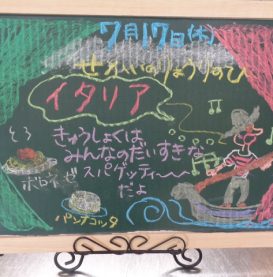 7月17日(木)
せかいのりょうりのひ
イタリア
きゅうしょくは
みんなのだいすきな
スパゲッティ～
だよ
ボロネーゼ
パンナコッタ